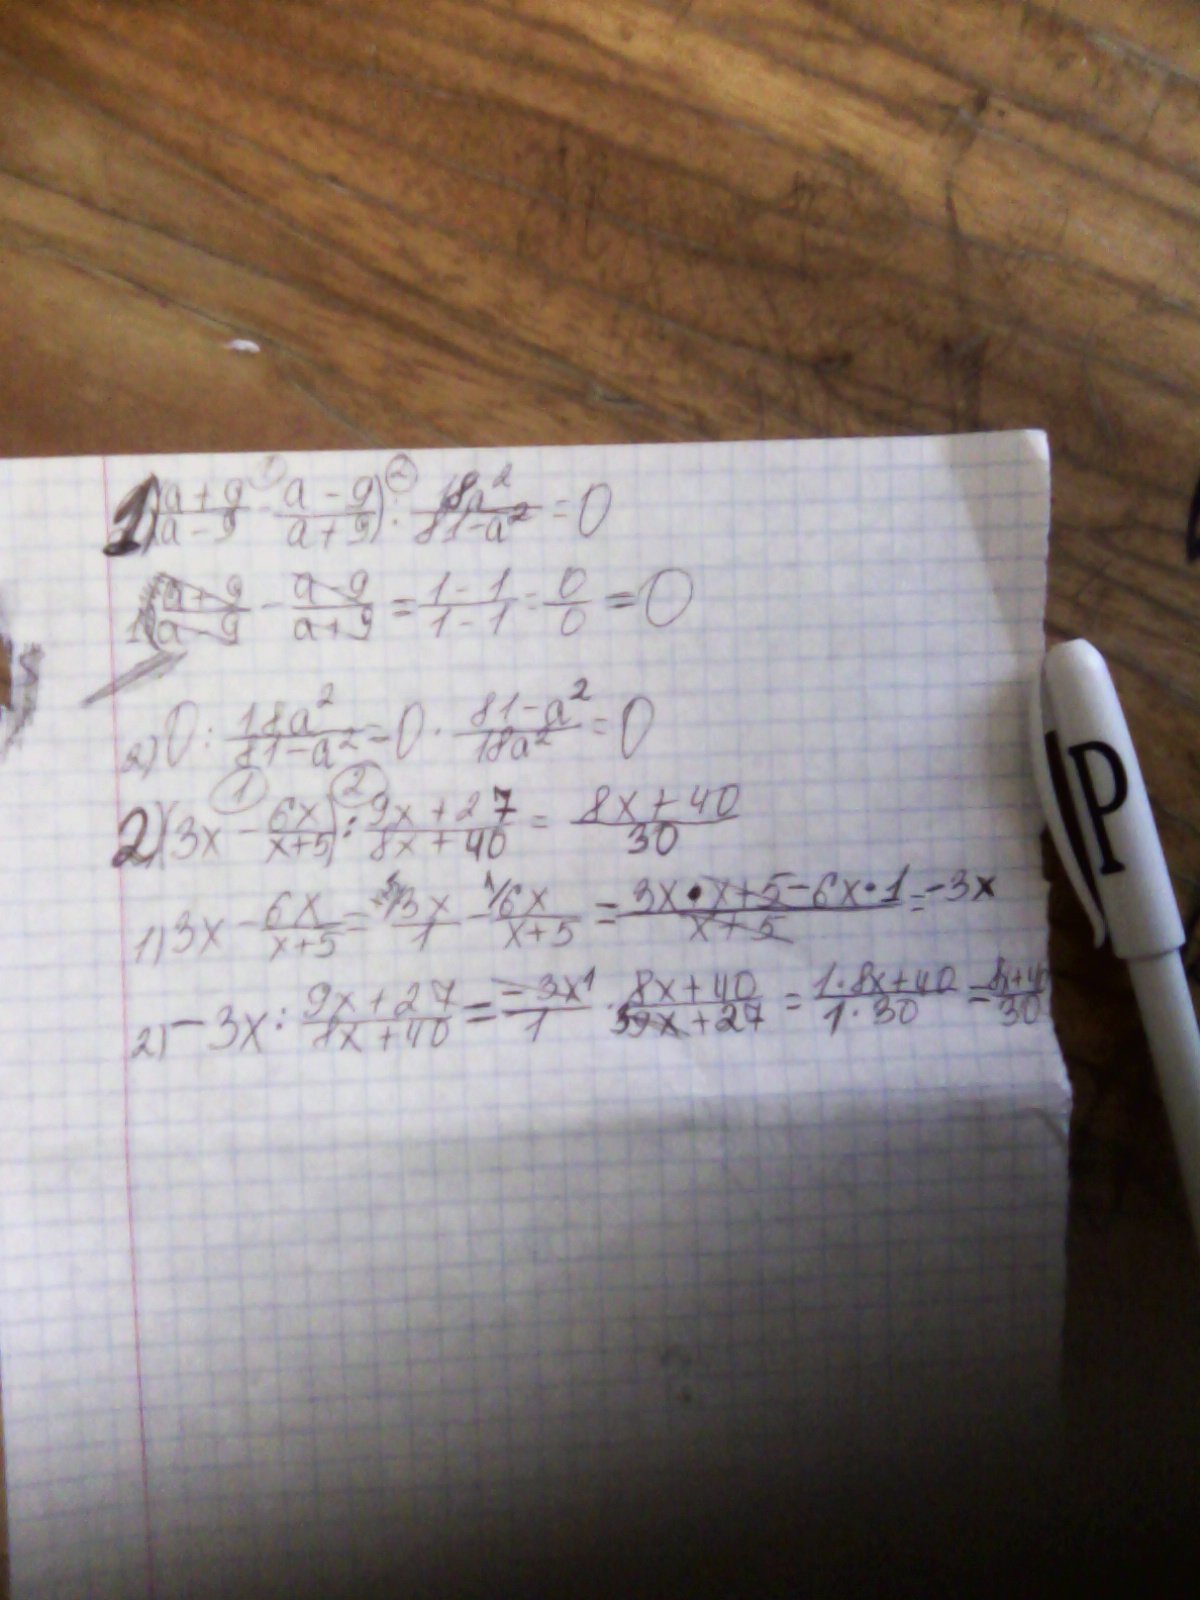 1) (a+9/a-9 - a-9/a+9) : 18a²/81-a² = 0
1) a+9/a-9 - a-9/a+9 = 1-1/1-1 = 0/0 = 0
2) 0 : 18a²/81-a² = 0 · 81-a²/18a² = 0
2) (3x - 6x/x+5) : 9x+27/8x+40 = 8x+40/30
1) 3x - 6x/x+5 = 3x/1 - 6x/x+5 = 3x·x+5-6x·1/x+5 = -3x
2) -3x : 9x+27/8x+40 = -3x¹/1 · 8x+40/39x+27 = 1·8x+40/1·30 = 8x+40/30
P